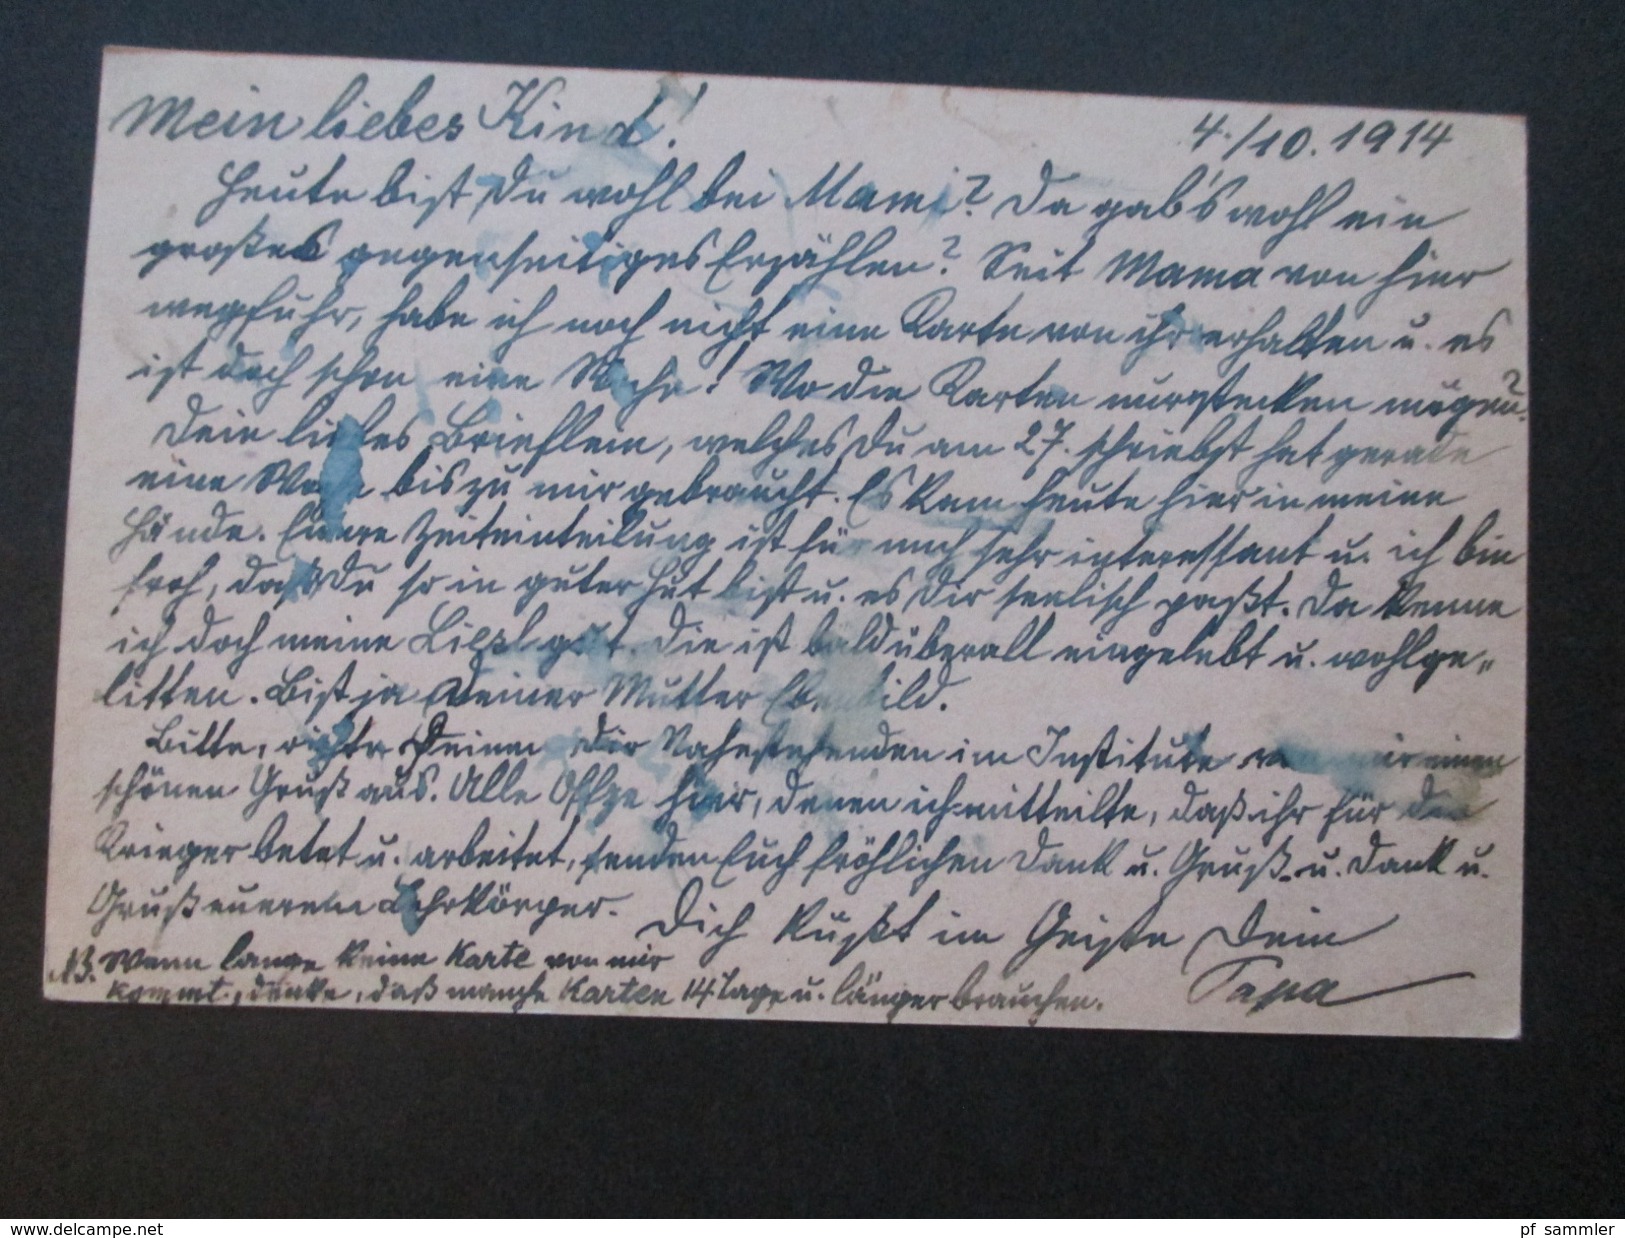 Mein liebes Kind! 4./10. 1914
Heute bist Du wohl bei Mami? Da gab's wohl ein
großes gegenseitiges Erzählen? Seit Mama von hier
wegfuhr, habe ich noch nicht eine Karte von ihr erhalten u. es
ist doch schon eine Woche! Wo die Karten nur stecken mögen?
Dein liebes Brieflein, welches Du am 27. schriebst hat gerade
eine Woche bis zu mir gebraucht. Es kam heute hier in meine
Hände. Euere Zeiteinteilung ist für mich sehr interessant u. ich bin
froh, daß Du so in guter Hut bist u. es Dir seelisch paßt. Da kenne
ich doch meine Liesl gut. Die ist bald überall eingelebt u. wohlge-
litten. Bist ja Deiner Mutter Ebenbild.
Bitte, richte Deinen Dir Nahestehenden im Institute von mir einen
schönen Gruß aus. Alle Offze hier, denen ich mitteilte, daß ihr für die
Krieger betet u. arbeitet, senden Euch fröhlichen Dank u. Gruß u. Dank u.
Gruß euerem Lehrkörper. Dich küßt im Geiste Dein
Papa
NB. Wenn lange keine Karte von mir
kommt, denke, daß manche Karten 14 Tage u. länger brauchen.
www.delcampe.net
pf_sammler